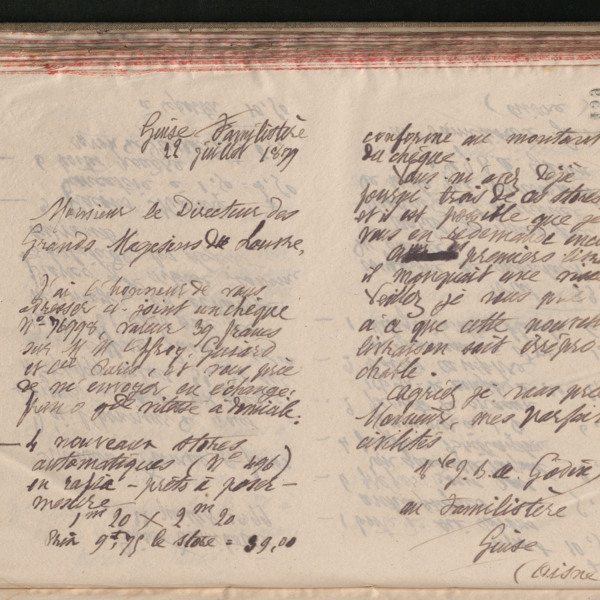 Guise Familistère
22 juillet 1899
Monsieur le Directeur des
Grands Magasins du Louvre,
J'ai l'honneur de vous
adresser ci-joint un chèque
N° 76798, valeur 39 francs
sur M M Offroy, Guiard
et Cie Paris, et vous prie
de m'envoyer en échange,
franco gde vitesse à domicile.
— 4 nouveaux stores
automatiques (N° 496)
en rapia - prêts à poser -
mesure
1m 20 X 2m 20
Prix 9f,75 le store = 39,00
conforme au montant
du chèque.
Vous m'avez déjà
fourni trois de ces stores
et il est possible que je
vous en redemande enc
premiers
il manquait une
Veillez je vous prie
à ce que cette nouvelle
livraison soit irrépro
chable.
Agréez je vous prie
Monsieur, mes parfaites
civilités
Vve J. B. A. Godin
au Familistère
Guise
(Aisne